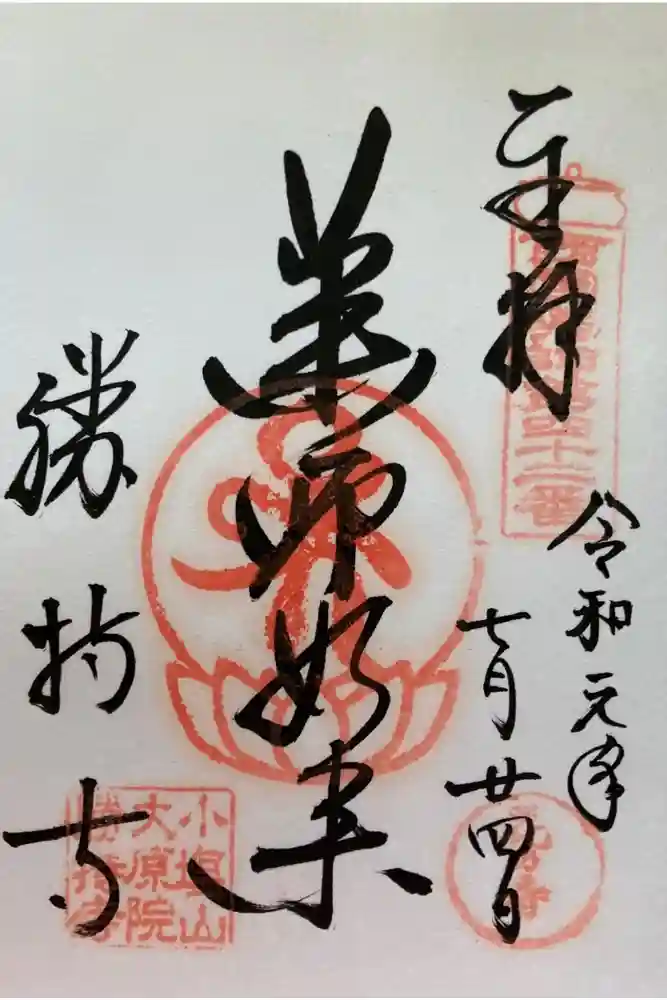 奉拝
西国薬師第四十二番
令和元年
七月廿四日
薬師如来
勝持寺
小塩山
大原院
勝持寺